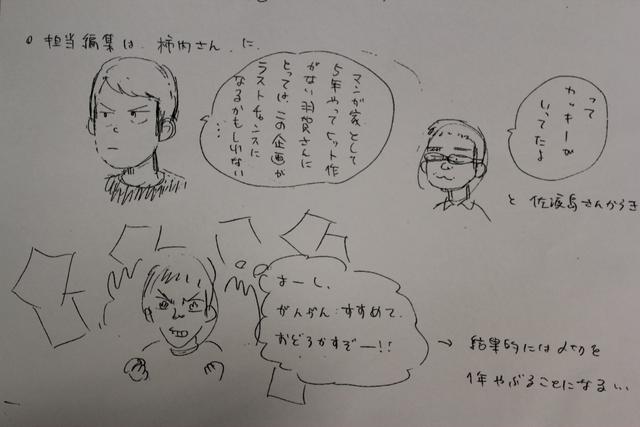 ○ 担当編集は、柿内さんに、
マンガ家として
5年やってヒット作
がない羽賀さんに
とっては、この企画が
ラストチャンスに
なるかもしれない
…
って
カッキーが
いってたよ
と 佐渡島さんからき
よーし、
がんがんすすめて、
おどろかすぞー!!
→ 結果的には〆切りを
1年やぶることになる…